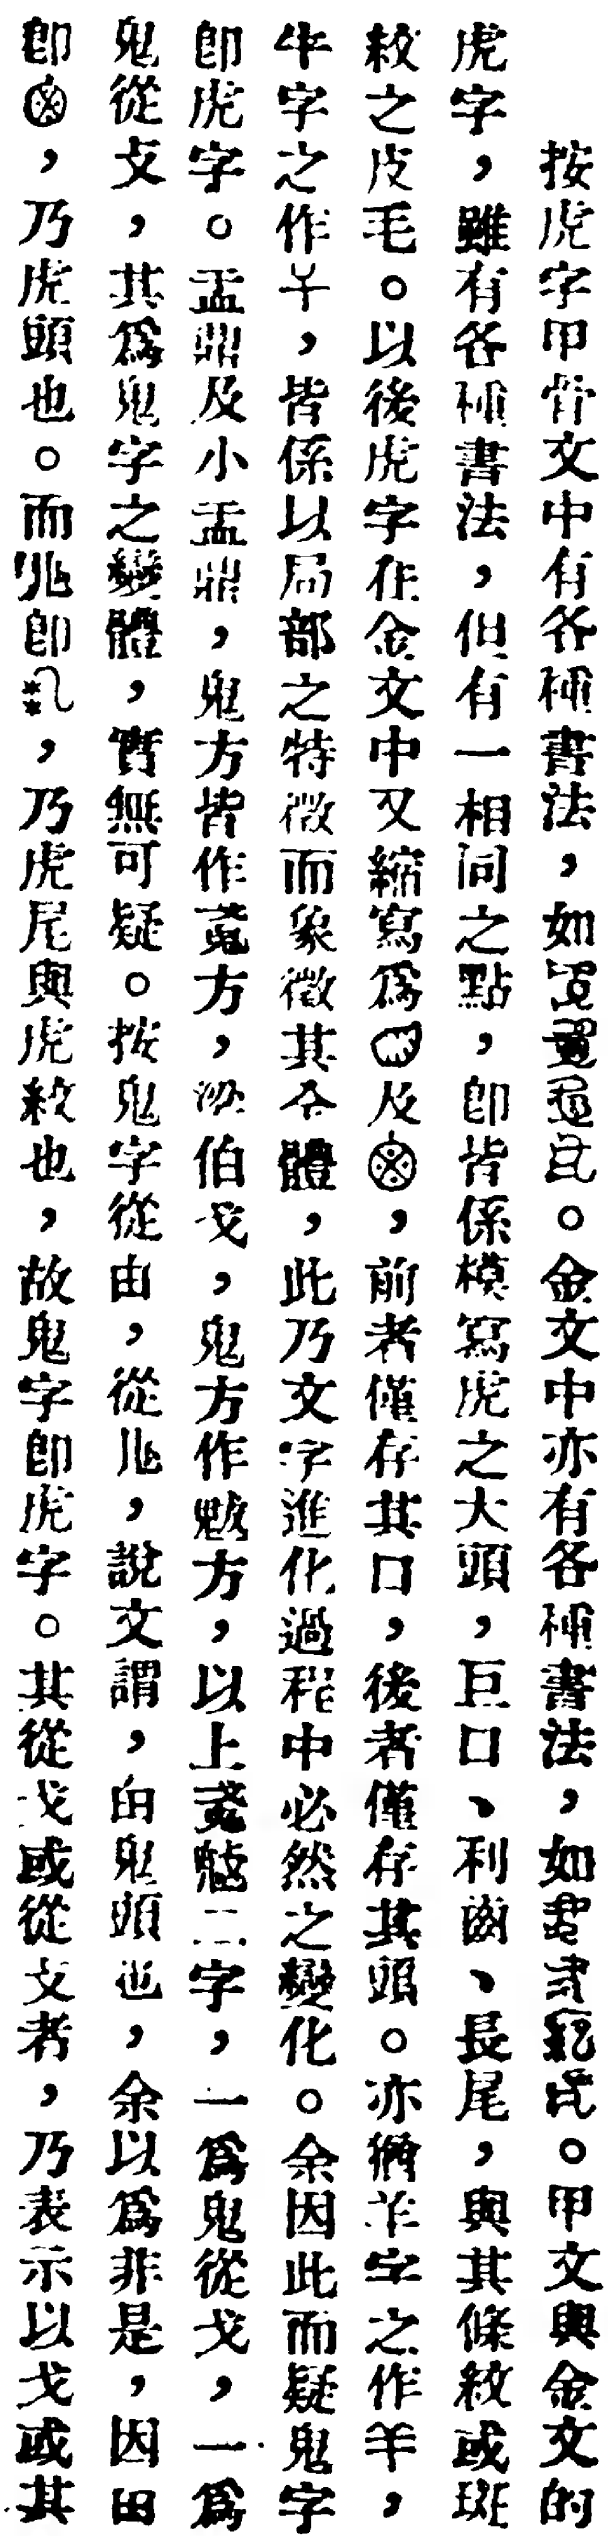 按虎字甲骨文中有各種書法，如。金文中亦有各種書法，如。甲文與金文的
虎字，雖有各種書法，但有一相同之點，即皆係模寫虎之大頭，巨口、利齒、長尾，與其條紋或斑
紋之皮毛。以後虎字在金文中又縮寫爲及，前者僅存其口，後者僅存其頭。亦猶羊字之作羊，
牛字之作，皆係以局部之特徵而象徵其全體，此乃文字進化過程中必然之變化。余因此而疑鬼字
即虎字。盂鼎及小盂鼎，鬼方皆作方，梁伯戈，鬼方作方，以上二字，一爲鬼從戈，一爲
鬼從攴，其爲鬼字之變體，實無可疑。按鬼字從由，從，說文謂，由鬼頭也，余以爲非是，因田
即，乃虎頭也。而即，乃虎尾與虎紋也，故鬼字即虎字。其從戈或從文者，乃表示以戈或其